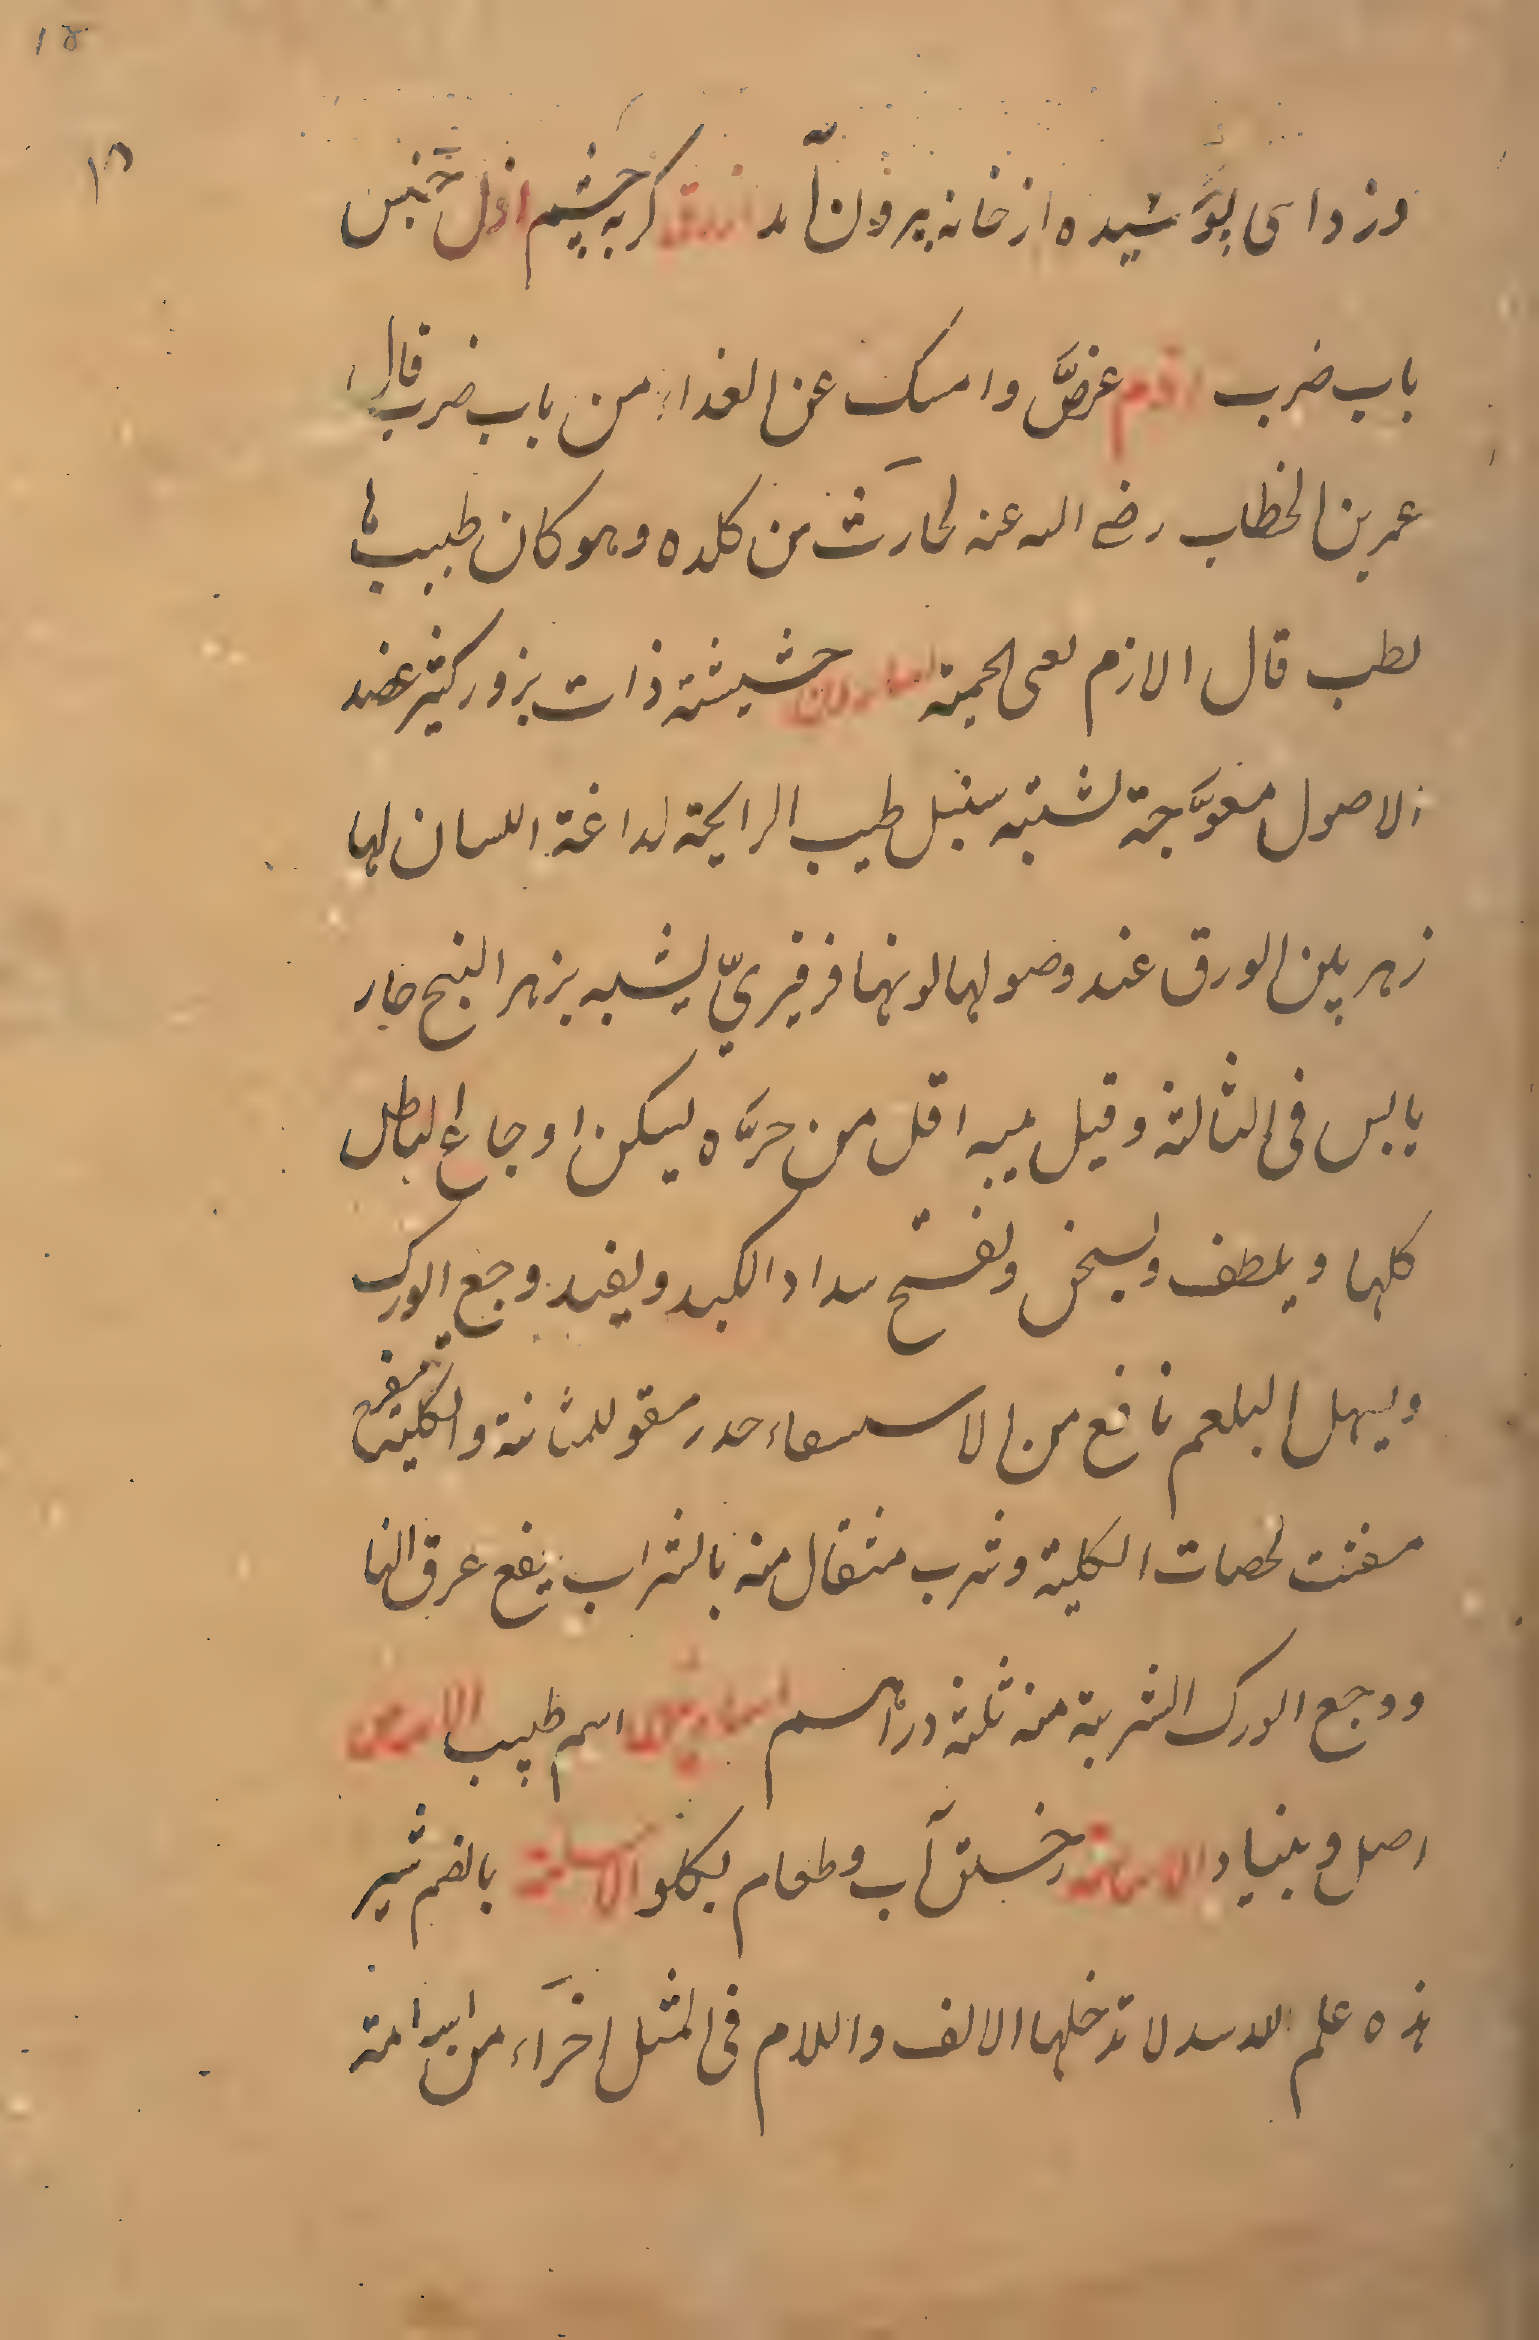 ۱۵
۱۵
وزدای پوشیده از خانه پیرون آمد ازرق کربه چشم ازل خبس
باب ضرب ازم عضَّ وامسک عن الغداء من باب ضرب قال
عمر بن الخطاب رضی الله عنه لحارث بن کلده وهو کان طبیب ها
لطب قال الازم یعنی الحمیة اسارون حشیشة ذات بزور کثیر عقد
الاصول معوَّجة تشبه سنبل طیب الرایحة لداغة اللسان لها
زهر بین الورق عند وصولها لونها فرفیریّ یشبه بزهر البنج حار
یابس فی الثالثة وقیل یبسه اقل من حرَّه یسکن اوجاع الباطن
کلها ویلطف ویسخن ویفتح سداد الکبد ویفید وجع الورک
ویسهل البلغم نافع من الاستسقاء مدر مقو للمثانة والکلیة
مفتت لحصات الکلیة وشرب مثقال منه بالشراب ینفع عرق النسا
ووجع الورک الشربة منه ثلثة دراهم اسم طبیب
اصل وبنیاد الاساغة رخستن آب وطعام بکلو الاسامة بالضم شیر
هذه علم للاسد لا تدخلها الالف واللام فی المثل اجراء من اسامة